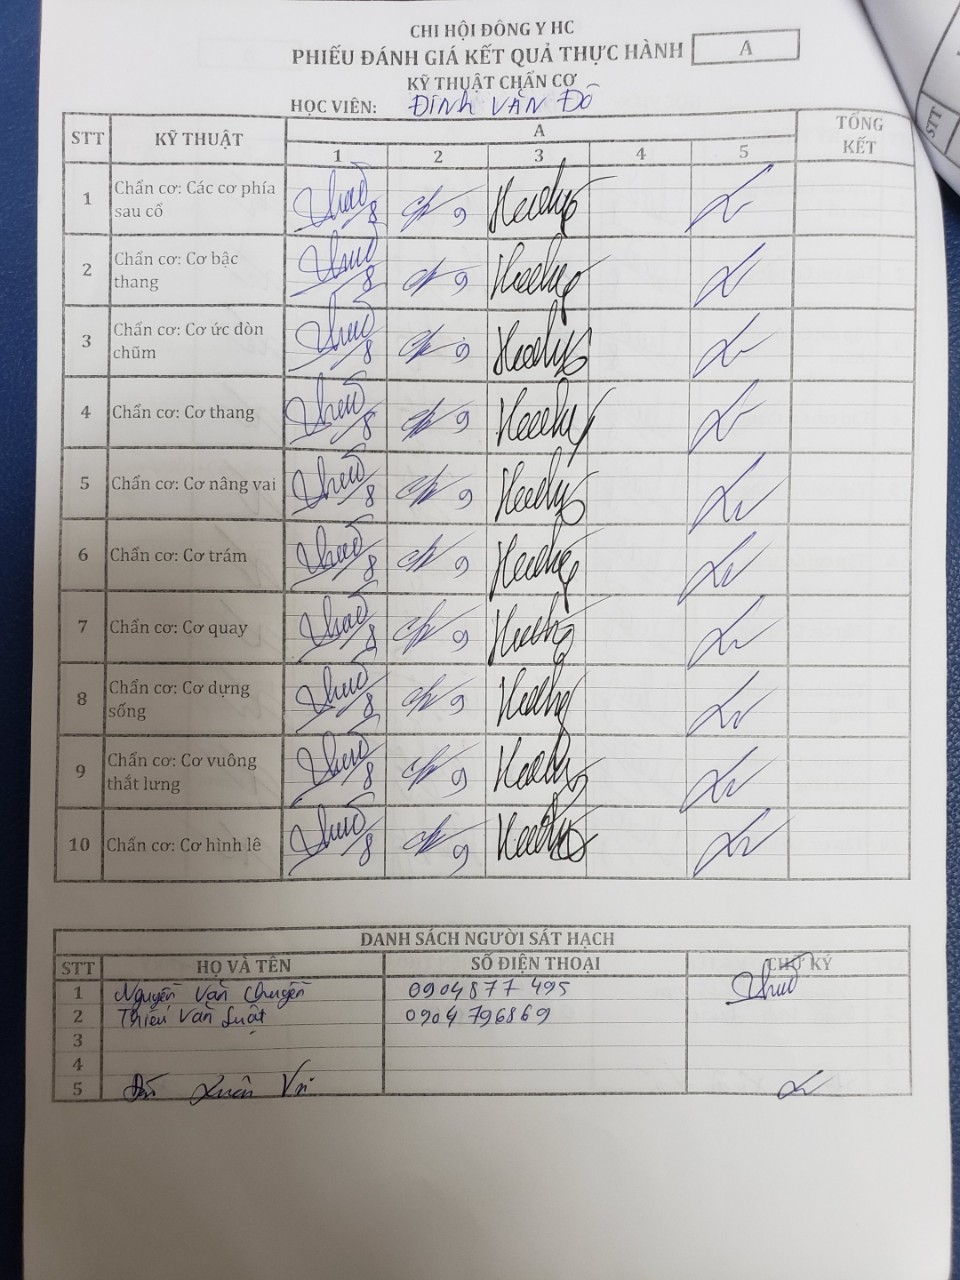 CHI HỘI ĐÔNG Y HC
PHIẾU ĐÁNH GIÁ KẾT QUẢ THỰC HÀNH A
KỸ THUẬT CHẨN CƠ
HỌC VIÊN: ĐINH VĂN ĐÔ
STT KỸ THUẬT A TỔNG KẾT
1 2 3 4 5
1 Chẩn cơ: Các cơ phía sau cổ 8 9
2 Chẩn cơ: Cơ bậc thang 8 9
3 Chẩn cơ: Cơ ức đòn chũm 8 9
4 Chẩn cơ: Cơ thang 8 9
5 Chẩn cơ: Cơ nâng vai 8 9
6 Chẩn cơ: Cơ trám 8 9
7 Chẩn cơ: Cơ quay 8 9
8 Chẩn cơ: Cơ dựng sống 8 9
9 Chẩn cơ: Cơ vuông thắt lưng 8 9
10 Chẩn cơ: Cơ hình lê 8 9
DANH SÁCH NGƯỜI SÁT HẠCH
STT HỌ VÀ TÊN SỐ ĐIỆN THOẠI CHỮ KÝ
1 Nguyễn Văn 0904877495
2 Thiều Văn Luật 0904796869
3
4
5 Xuân
STT